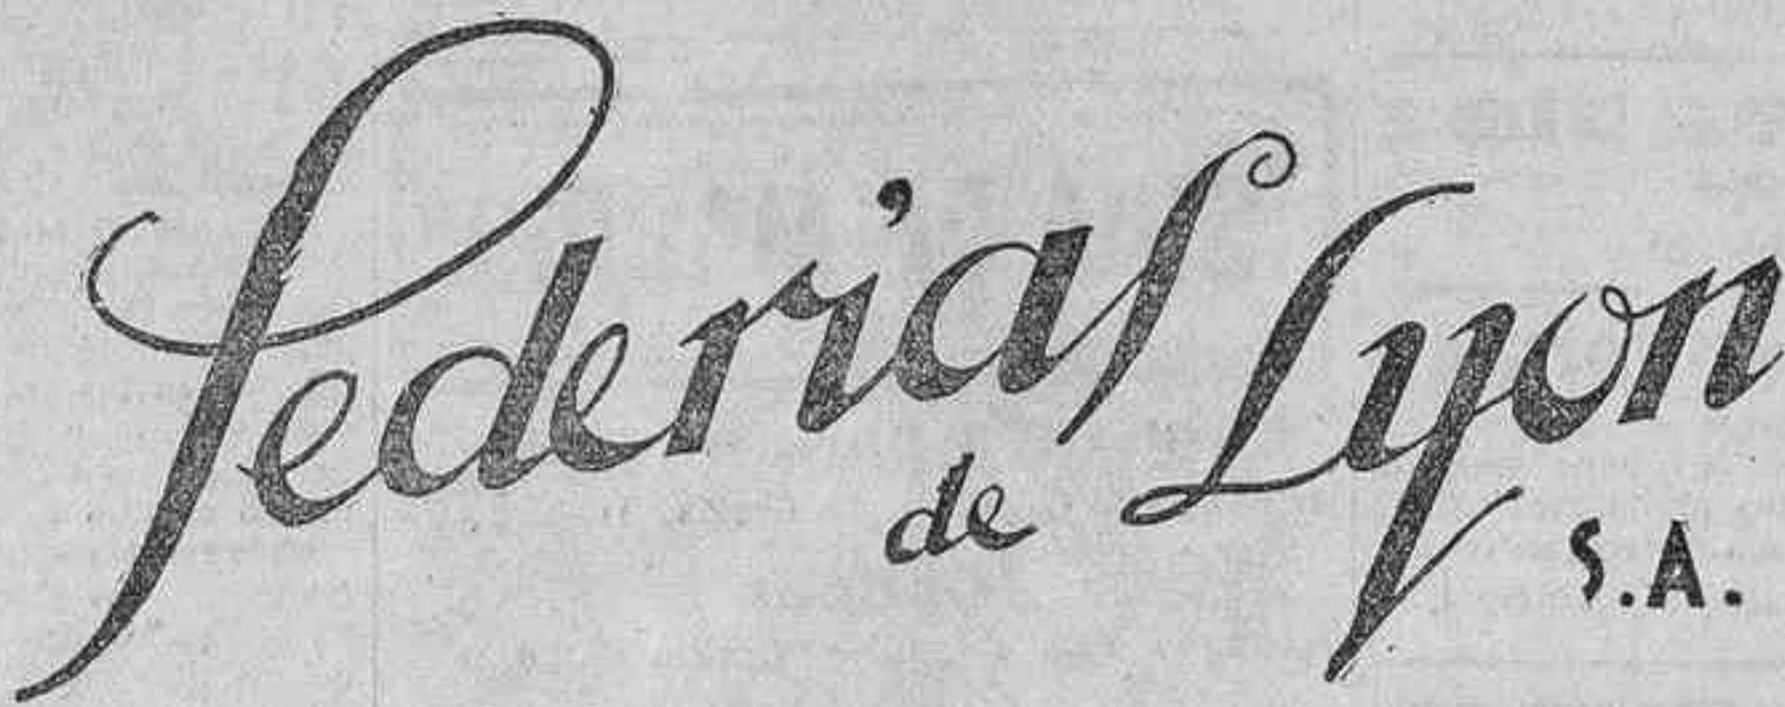 Sederías
de Lyon
S.A.